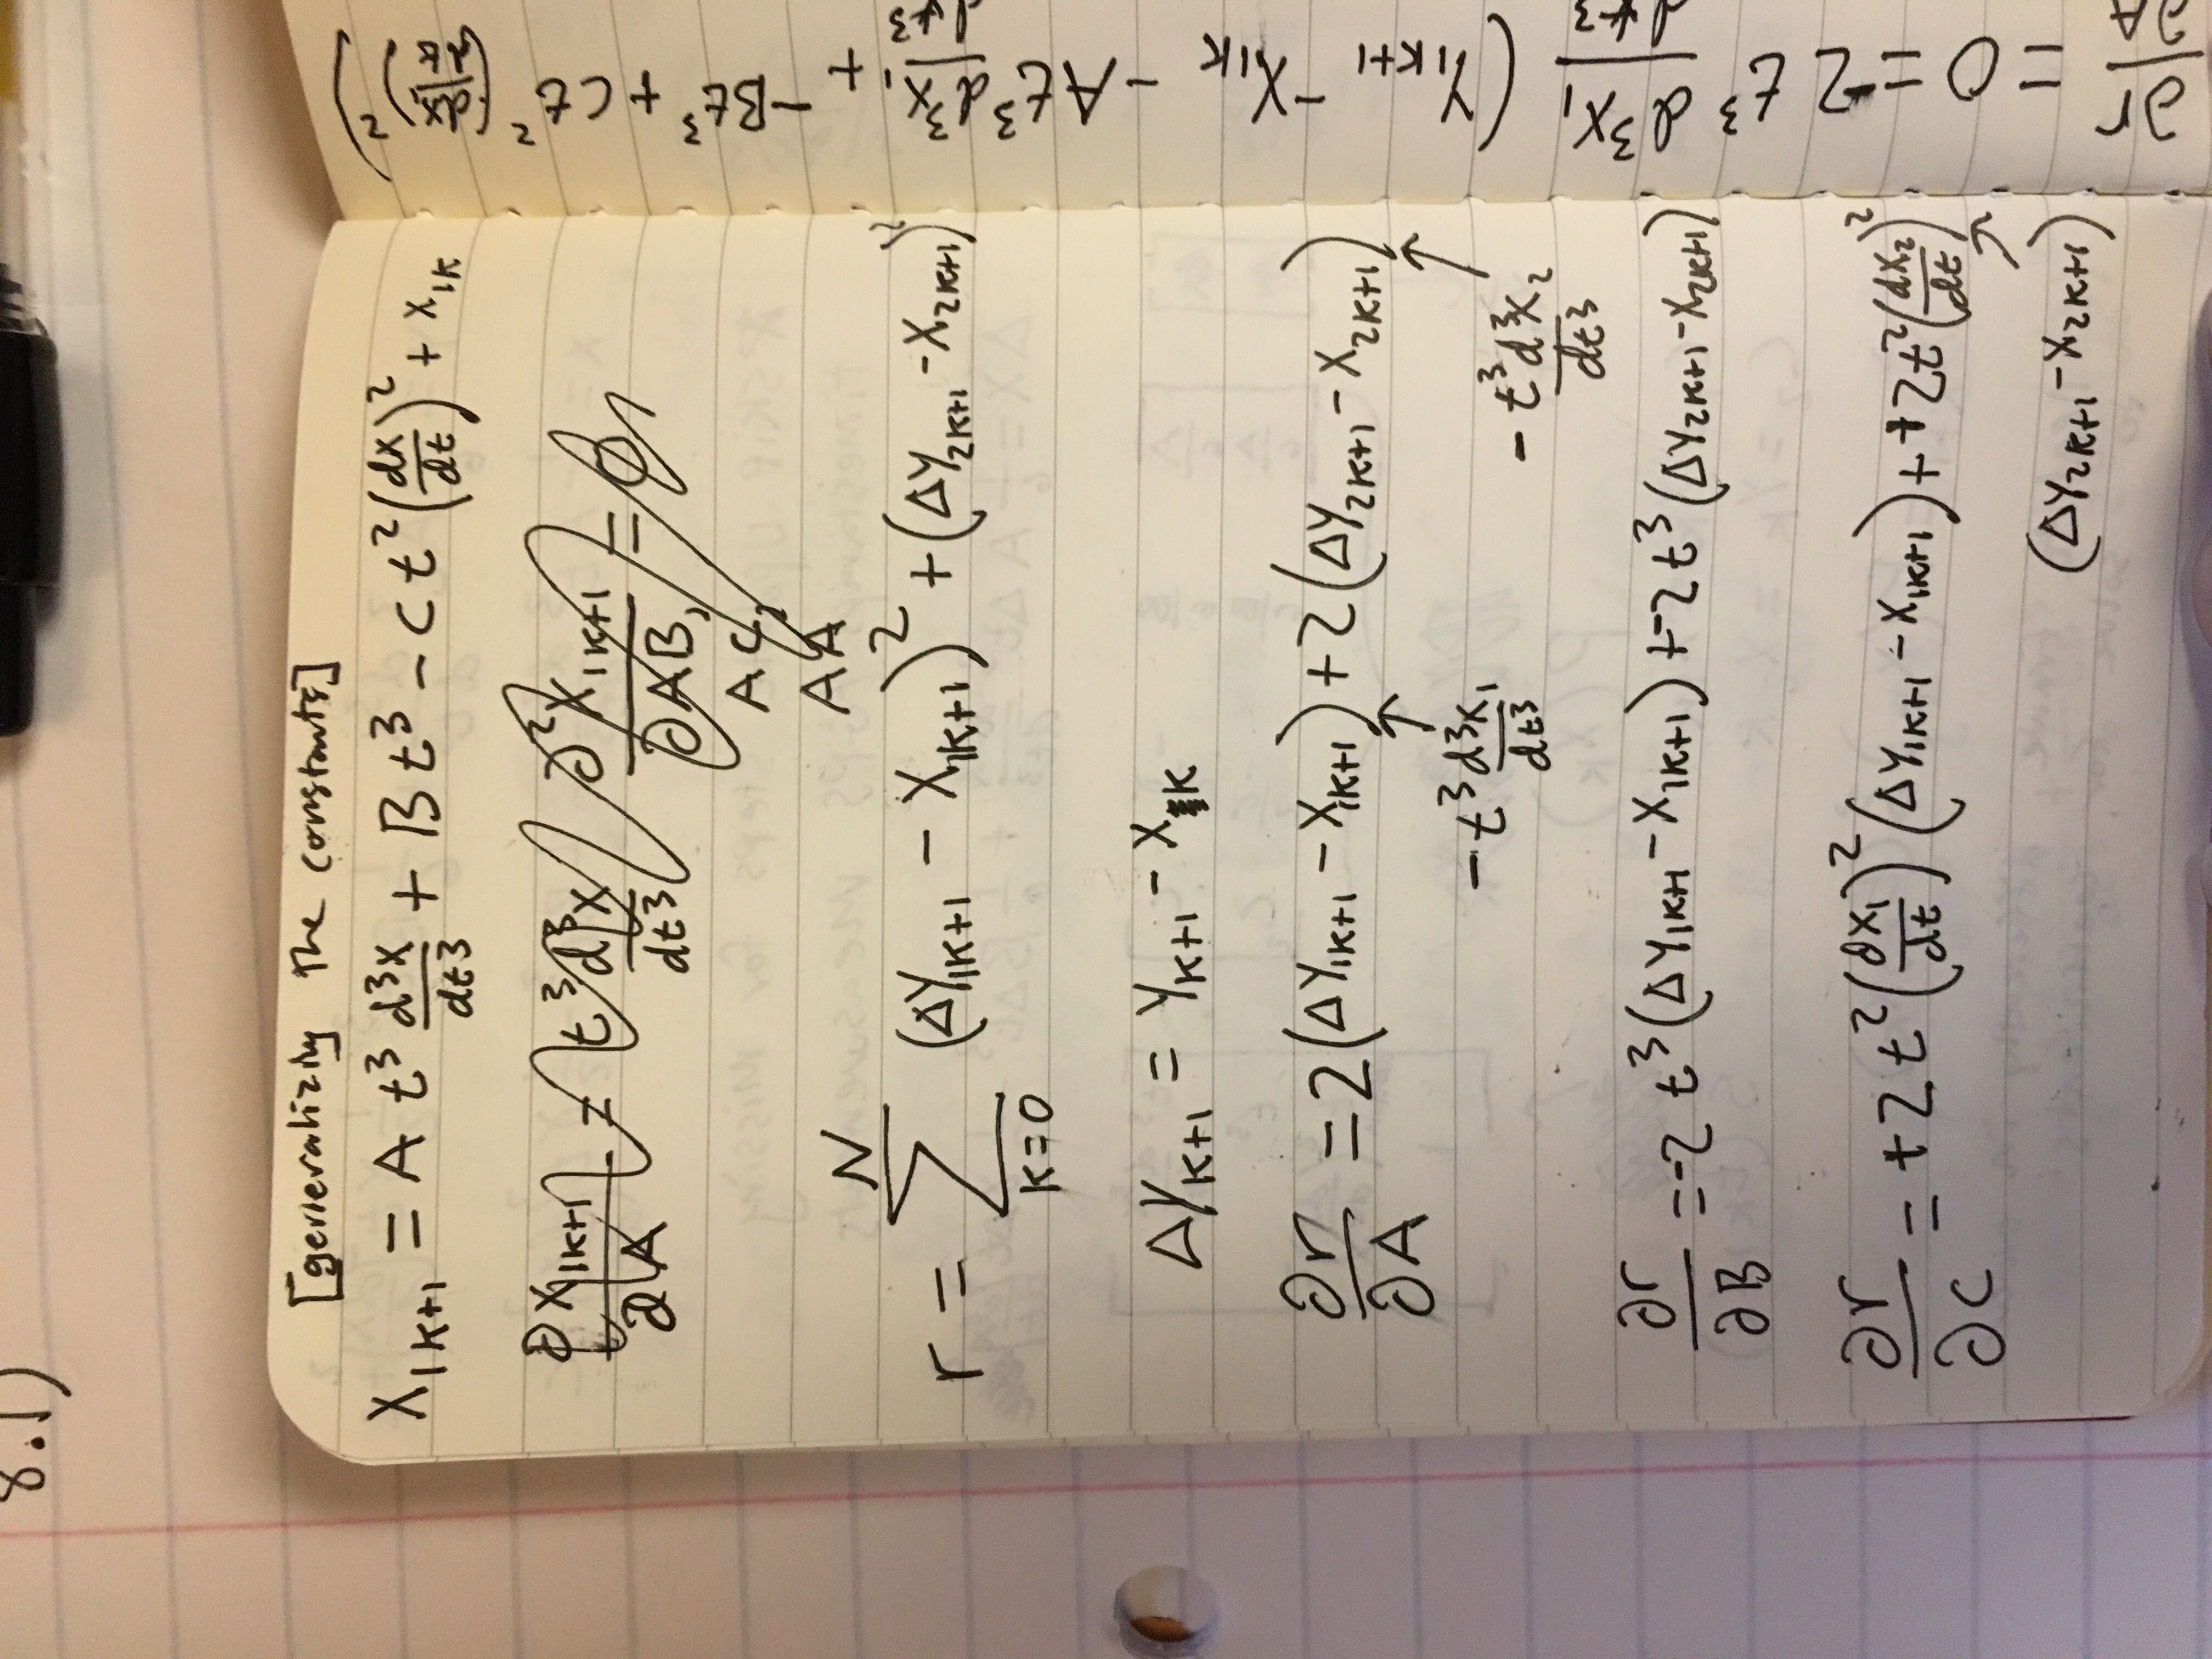 [generalizing the constants]
X₁ₖ₊₁ = A t³ d³x/dt³ + B t³ - C t² (dx/dt)² + x₁ₖ
∂X₁ₖ₊₁/∂A = t³ d³x/dt³ ∂²X₁ₖ₊₁/∂AB, = 0
AC,
AA
r = N Σ k=0 (ΔY₁ₖ₊₁ - X₁ₖ₊₁)² + (ΔY₂ₖ₊₁ - X₂ₖ₊₁)²
ΔYₖ₊₁ = Yₖ₊₁ - Xₖ
∂r/∂A = 2(ΔY₁ₖ₊₁ - X₁ₖ₊₁) + 2(ΔY₂ₖ₊₁ - X₂ₖ₊₁)
- t³ d³x₁/dt³ - t³ d³x₂/dt³
∂r/∂B = -2 t³(ΔY₁ₖ₊₁ - X₁ₖ₊₁) + -2 t³(ΔY₂ₖ₊₁ - X₂ₖ₊₁)
∂r/∂C = +2 t² (dx₁/dt)² (ΔY₁ₖ₊₁ - X₁ₖ₊₁) + +2t² (dx₂/dt)²
(ΔY₂ₖ₊₁ - X₂ₖ₊₁)
∂r/∂A = 0 = 2 t³ d³x₁/dt³ (Y₁ₖ₊₁ - X₁ₖ - A t³ d³x₁/dt³ + - B t³ + C t² (dx/dt)²)
8.1)